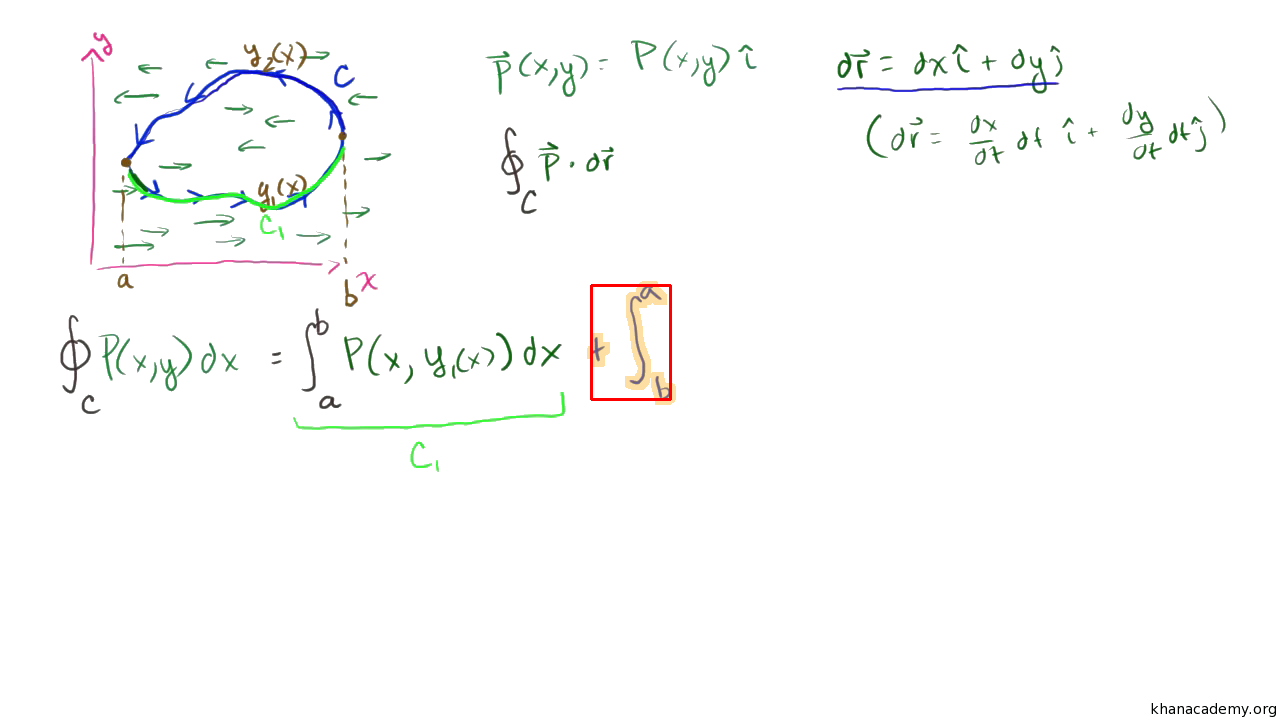 y
y₂(x)
C
y₁(x)
C₁
a
b
x
p⃗(x,y) = P(x,y) î
∮_C p⃗ · dr⃗
dr⃗ = dx î + dy ĵ
(dr⃗ = dx/dt dt î + dy/dt dt ĵ)
∮_C P(x,y) dx = ∫_a^b P(x, y₁(x)) dx + ∫_b^a
C₁
khanacademy.org